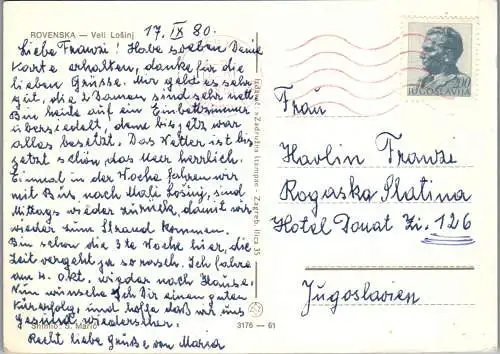 ROVENSKA — Veli Lošinj
17. IX 80.
Liebe Franzi! Habe soeben Deine
Karte erhalten, danke für die
lieben Grüsse. Mir geht es sehr
gut, die 2 Damen, sind sehr nett.
Bin heute auf ein Einbettzimmer
übersiedelt, denn bis jetzt war
alles besetzt. Das Wetter ist bis
jetzt schön, das Meer herrlich.
Einmal in der Woche fahren wir
mit Bus, nach Mali Lošinj, sind
Mittags wieder zurück, damit wir
wieder zum Strand kommen.
Bin schon die 3te Woche hier, die
Zeit vergeht ja so rasch. Ich fahre
am 4. Okt. wieder nach Hause.
Nun wünsche ich Dir einen guten
Kurerfolg, und hoffe daß wir uns
Gesund wiedersehen.
Recht liebe Grüße von Maria
Snimio: S. Marić
3176 — 61
Izdanje: »Zadružna štampa« Zagreb, Ilica 35
2,00
JUGOSLAVIJA
Frau
Havlin Franze
Rogaska Slatina
Hotel Donat Zi. 126
Jugoslavien